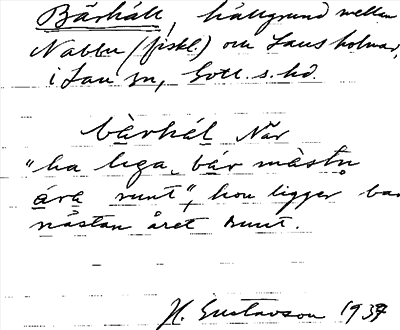 Bärhäll, hällgrund mellan
Nabbu (fiskl.) och Laus holmar,
i Lau sn, Gotl. s. hd.
bàrhál När
"ha liga bár màstn
ára runt", hon ligger bar
nästan året runt.
H. Gustavson 1937